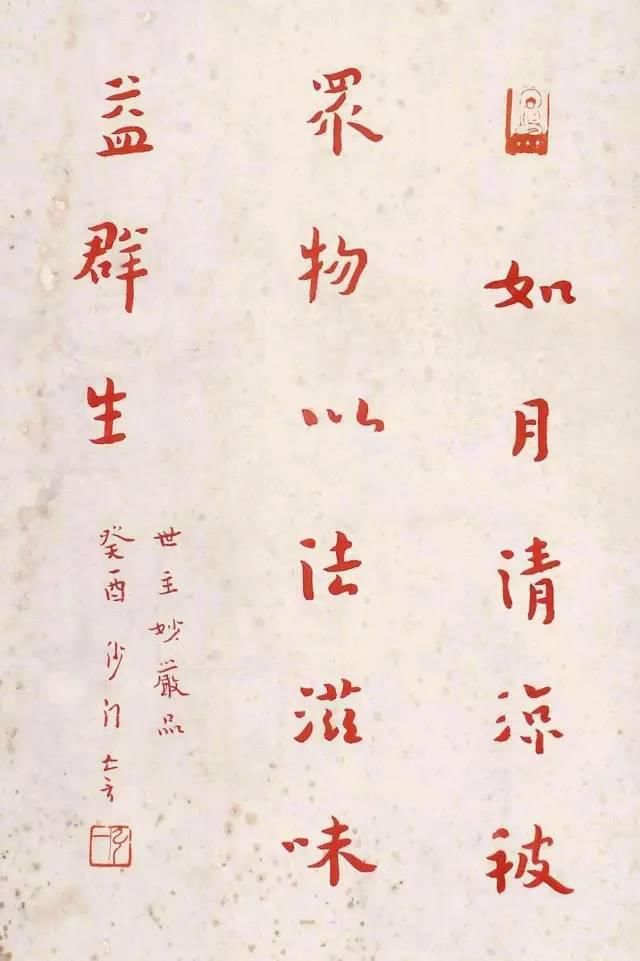 如月清涼被
眾物以法滋味
益群生
世主妙嚴品
癸酉沙门亡言